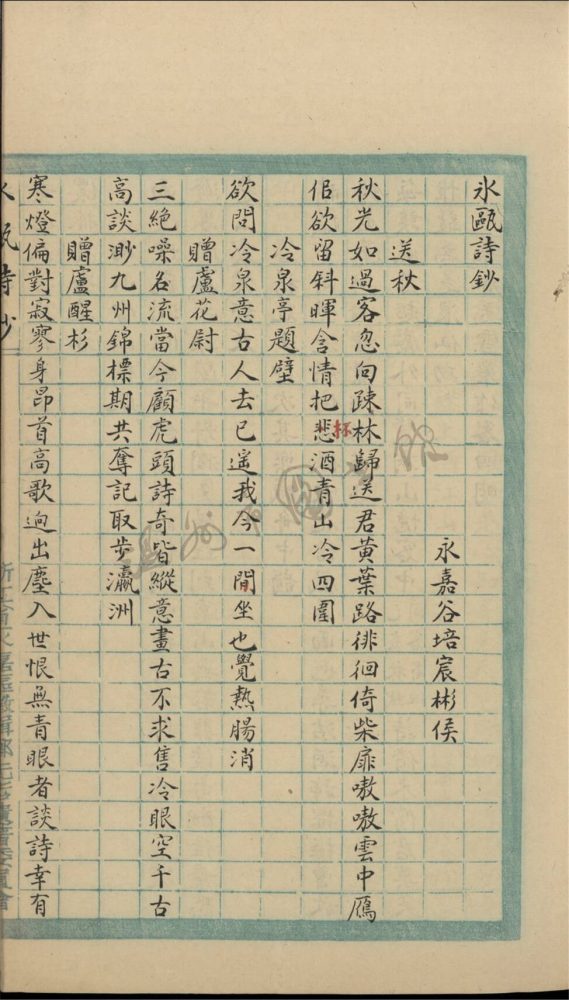 氷甌詩鈔
永嘉谷培宸彬侯
送秋
秋光如過客忽向疎林歸送君黃葉路徘徊倚柴扉嗷嗷雲中鴈
佀欲留斜暉含情把悲酒青山冷四圍
杯
冷泉亭題壁
欲問冷泉意古人去已遙我今一閒坐也覺熱腸消
贈盧花尉
三絕噪名流當今顧虎頭詩奇皆縱意畫古不求售冷眼空千古
高談渺九州錦標期共奪記取步瀛洲
贈盧醒杉
寒燈偏對寂寥身昂首高歌迥出塵入世恨無青眼者談詩幸有
氷甌詩鈔
溫州市圖書館